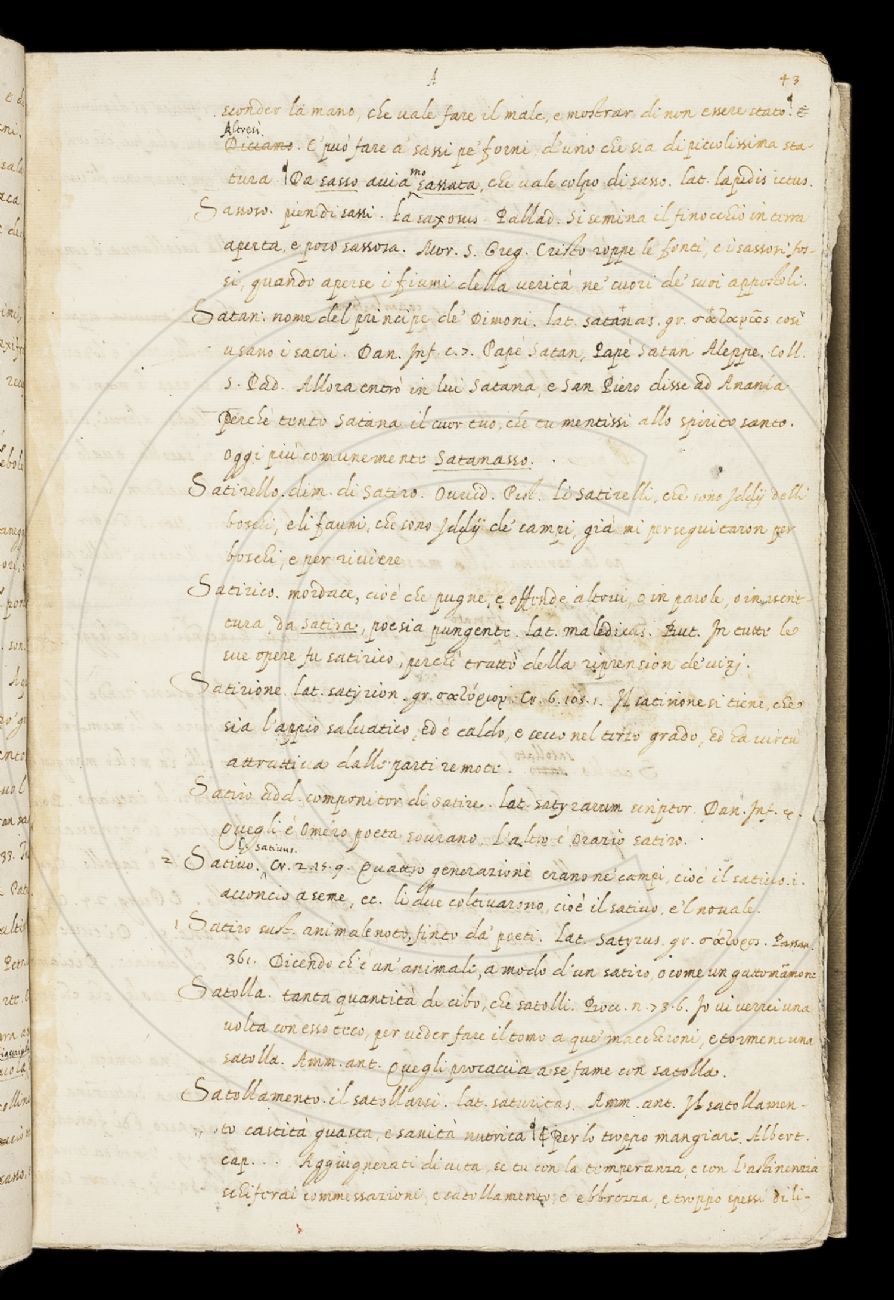 A
43
sconder la mano, che vale fare il male, e mostrar di non essere stato. E
Altresì
Diciamo. E' può fare a' sassi pe' forni, d'uno che sia di picciolissima sta-
tura. Da sasso avia mo sassata, che vale colpo di sasso. lat. lapidis ictus.
Sassoso. pien di sassi. La. saxosus. Pallad. Si semina il finocchio in terra
aperta, e poco sassosa. Mor. S. Greg. Cristo roppe le fonti, e i sassosi fos-
si, quando aperse i fiumi della verità ne' cuori de' suoi appostoli.
Satan. nome del principe de' Dimoni. lat. satanas. gr. σατανᾶς così
usano i sacri. Dan. Inf. c. 7. Papè Satan, Papè Satan Aleppe. Coll.
S. Pad. Allora entrò in lui Satana, e San Piero disse ad Anania.
Perchè tentò Satana il cuor tuo, che tu mentissi allo spirito santo.
oggi più comunemente Satanasso.
Satirello. dim. di Satiro. Ovvid. Pist. li Satirelli, che sono Iddij delli
boschi, e li fauni, che sono Iddij de' campi, già mi perseguitaron per
boschi, e per riviere
Satirico. mordace, cioè che pugne, e offende altrui, o in parole, o in iscrit-
tura, da Satira, poesia pungente. Lat. maledicus. But. In tutte le
sue opere fu satirico, perchè trattò della riprension de' vizj.
Satirione. lat. satyrion. gr. σατύριον. Cr. 6. 105. 1. Il satirione si tiene, che
sia l'appio salvatico, ed è caldo, e secco nel terzo grado, ed ha virtù
attrattiva dalle parti remote.
Satiro add. componitor di satire. lat. satyrarum scriptor. Dan. Inf. 4.
Quegli è Omero poeta sovrano, L'altro è Orazio satiro.
La. sativus.
2 Sativo. Cr. 2. 15. 9. Quattro generazioni erano ne' campi, cioè il sativo. i.
acconcio a seme, ec. li due coltivarono, cioè il sativo, e 'l novale.
1 Satiro sust. animale noto, finto da' poeti. Lat. Satyrus. gr. σάτυρος.
361. Dicendo ch'è un' animale, a modo d'un satiro, o come un gattomammone
Satolla. tanta quantità di cibo, che satolli. Bocc. n. 73. 6. Io vi verrei una
volta con esso teco, per veder fare il tomo a que' maccheroni, e tormene una
satolla. Amm. ant. Quegli procaccia a se fame con satolla.
Satollamento. il satollarsi. lat. saturitas. Amm. ant. Il satollamen-
to castità guasta, e sanità nutrica. E per lo troppo mangiare. Albert.
cap. . . Aggiugnerati di vita, se tu con la temperanza, e con l'astinenzia
schiferai commessazioni, e satollamento, e ebbrezza, e troppo spessi dili-